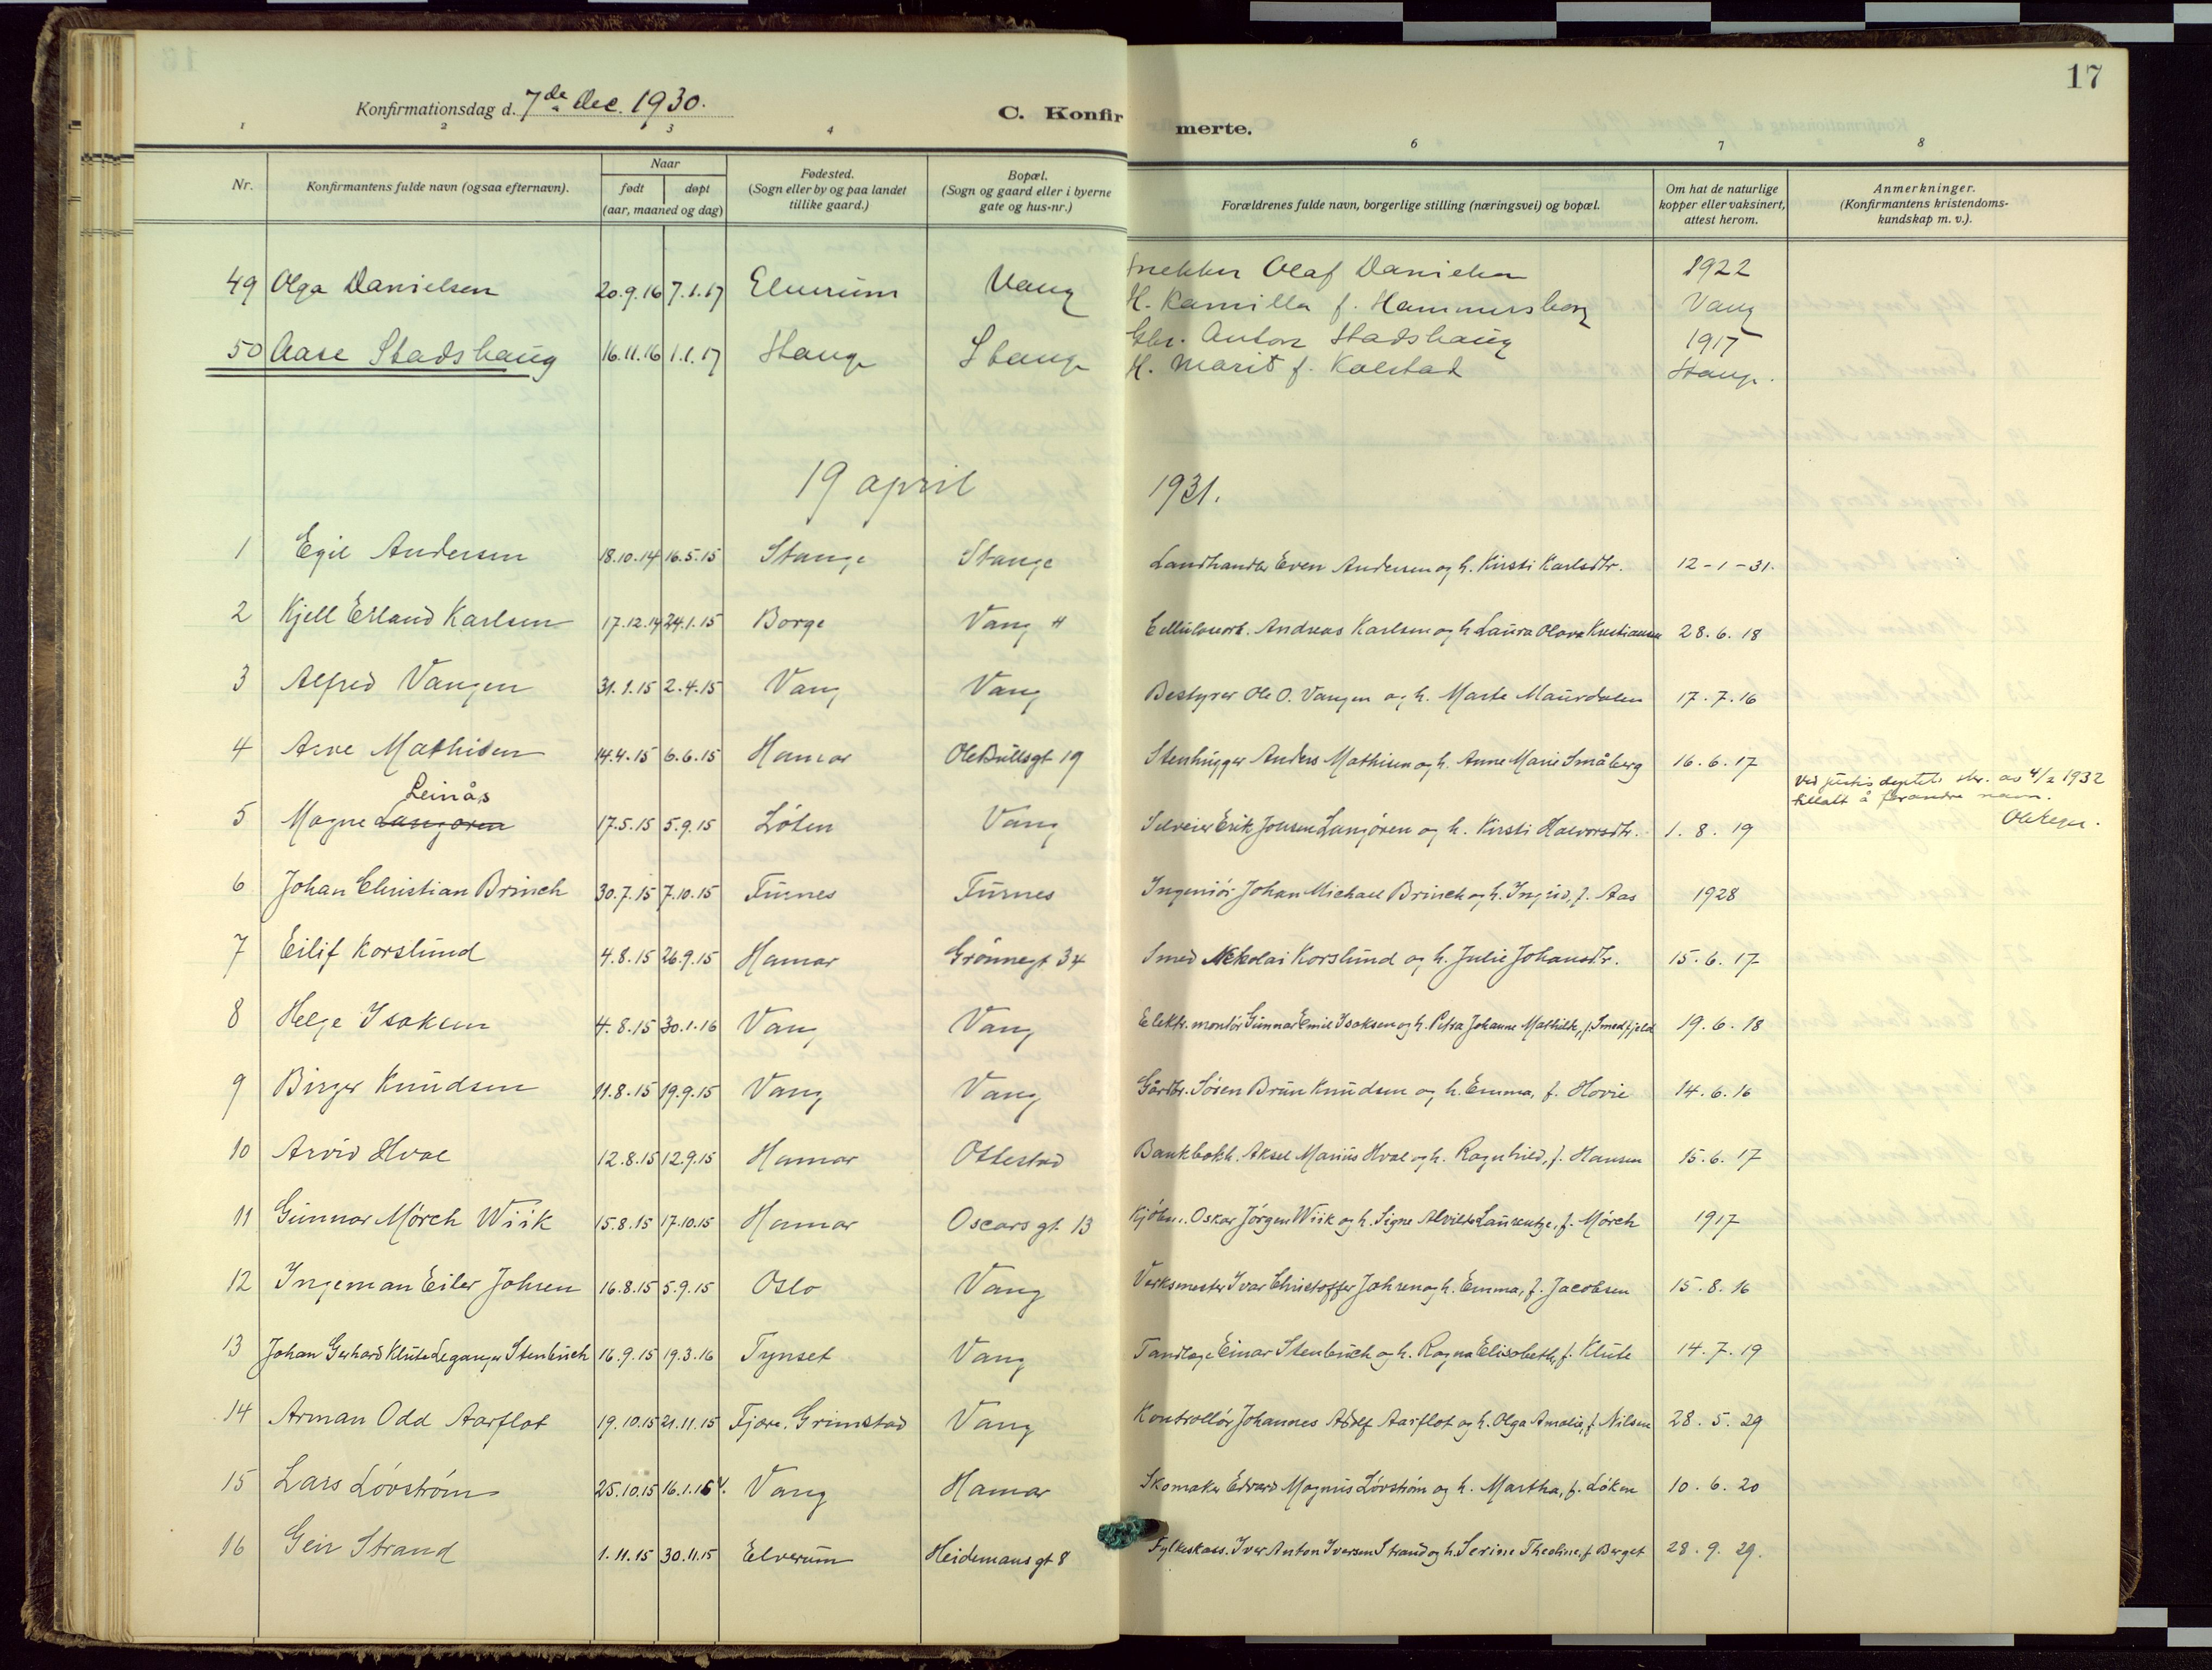 17
Konfirmationsdag d. 7de dec. 1930.
C. Konfirmerte.
1 2 3 4 6 7 8
Nr.
Konfirmantens fulde navn (ogsaa efternavn).
Naar
født døpt
(aar, maaned og dag)
Fødested.
(Sogn eller by og paa landet
tillike gaard.)
Bopæl.
(Sogn og gaard eller i byerne
gate og hus-nr.)
Forældrenes fulde navn, borgerlige stilling (næringsvei) og bopæl.
Om hat de naturlige
kopper eller vaksinert,
attest herom.
Anmerkninger.
(Konfirmantens kristendoms-
kundskap m. v.).
49 Olga Danielsen 20.9.16 7.1.17 Elverum Vang Snekker Olaf Danielsen 1922
H. Kamilla f. Hammersborg Vang
50 Aase Stadshaug 16.11.16 1.1.17 Stange Stange Gbr. Anton Stadshaug 1917
H. Marit f. Kolstad Stange.
19 april 1931.
1 Egil Andersen 18.10.14 16.5.15 Stange Stange Landhandler Even Andersen og h. Kirsti Karlsdtr. 12-1-31.
2 Kjell Erland Karlsen 17.12.14 24.1.15 Borge Vang H Cellulosearb. Andreas Karlsen og h. Laura Olava Kristiansen 28.6.18
3 Alfred Vangen 31.1.15 2.4.15 Vang Vang Bestyrer Ole O. Vangen og h. Marte Maurdalen 17.7.16
4 Arve Mathisen 14.4.15 6.6.15 Hamar Ole Bullsgt 19 Stenhugger Anders Mathisen og h. Anne Marie Småberg 16.6.17
Leinås
Ved justisdeptets skr. av 4/2 1932
tillatt å forandre navn.
5 Magne Langøren 17.5.15 5.9.15 Løten Vang Selveier Erik Johsen Langøren og h. Kirsti Halvorsdtr. 1.8.19
6 Johan Christian Brinch 30.7.15 7.10.15 Furnes Furnes Ingeniør Johan Michael Brinch og h. Ingrid, f. Aas 1928
7 Eilif Korslund 4.8.15 26.9.15 Hamar Grønnegt 34 Smed Nikolai Korslund og h. Julie Johansdtr. 15.6.17
8 Helge Isaksen 4.8.15 30.1.16 Vang Vang Elektr. montør Gunnar Emil Isaksen og h. Petra Johanne Mathilde, f. Smedsfjeld 19.6.18
9 Birger Knudsen 11.8.15 19.9.15 Vang Vang Gårdbr. Søren Brun Knudsen og h. Emma, f. Hovie 14.6.16
10 Arvid Hval 12.8.15 12.9.15 Hamar Ottestad Bankbokh. Aksel Marius Hval og h. Ragnhild, f. Hansen 15.6.17
11 Gunnar Mørch Wiik 15.8.15 17.10.15 Hamar Oscars gt 13 Kjøbm. Oskar Jørgen Wiik og h. Signe Alvilde Laurentze, f. Mørch 1917
12 Ingeman Eiler Johsen 16.8.15 5.9.15 Oslo Vang Verksmester Ivar Christoffer Johsen og h. Emma, f. Jacobsen 15.8.16
13 Johan Gerhard Klute Leganger Stenbuch 16.9.15 19.3.16 Tynset Vang Tandlæge Einar Stenbuch og h. Ragna Elisabeth, f. Klute 14.7.19
14 Arman Odd Aarflot 19.10.15 21.11.15 Fjære. Grimstad Vang Kontrollør Johannes Adolf Aarflot og h. Olga Amalie, f. Nilsen 28.5.29
15 Lars Løvstrøm 25.10.15 16.1.16 Vang Hamar Skomaker Edvard Magnus Løvstrøm og h. Martha, f. Løken 10.6.20
16 Geir Strand 1.11.15 30.11.15 Elverum Heidemans gt 8 Fylkeskass. Iver Anton Iversen Strand og h. Serine Theoline, f. Berget 28.9.29.